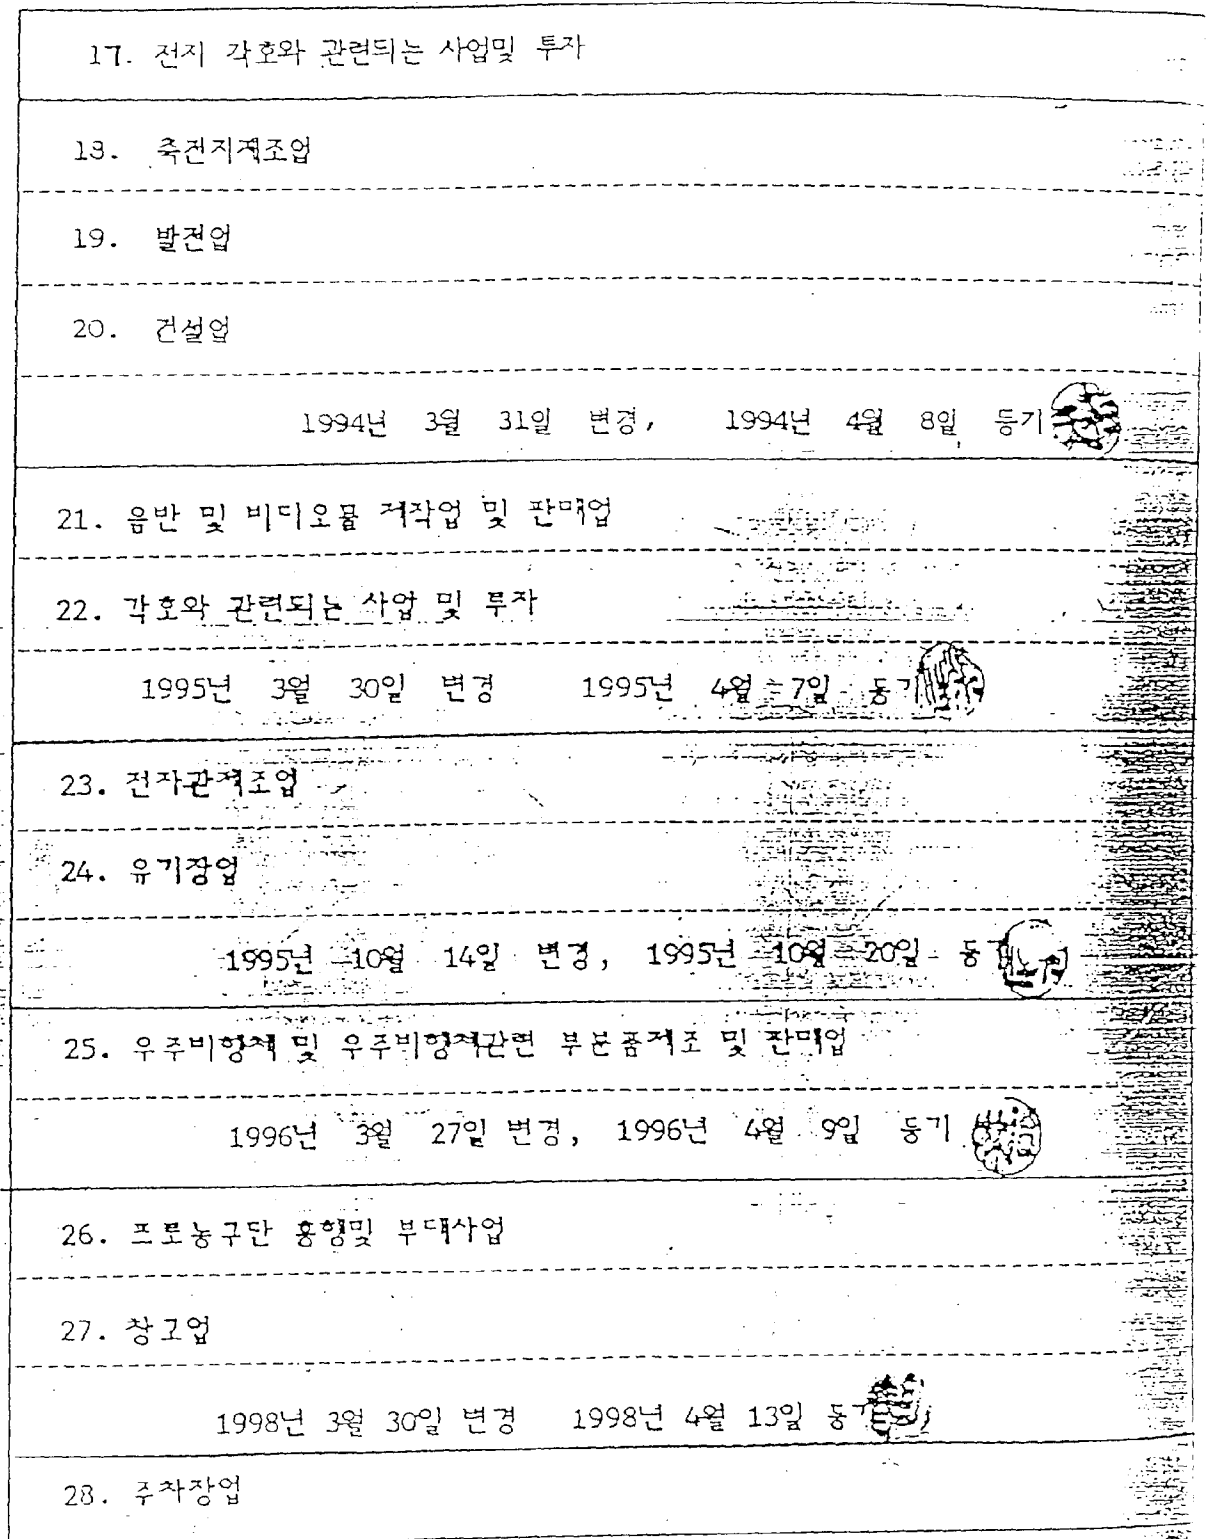 17. 전지 각호와 관련되는 사업및 투자
18. 축전지제조업
19. 발전업
20. 건설업
1994년 3월 31일 변경, 1994년 4월 8일 등기
21. 음반 및 비디오물 제작업 및 판매업
22. 각호와 관련되는 사업 및 투자
1995년 3월 30일 변경 1995년 4월 7일 등기
23. 전자관제조업
24. 유기장업
1995년 10월 14일 변경, 1995년 10월 20일 등기
25. 우주비행체 및 우주비행체관련 부분품제조 및 판매업
1996년 3월 27일 변경, 1996년 4월 9일 등기
26. 프로농구단 흥행및 부대사업
27. 창고업
1998년 3월 30일 변경 1998년 4월 13일 등기
28. 주차장업